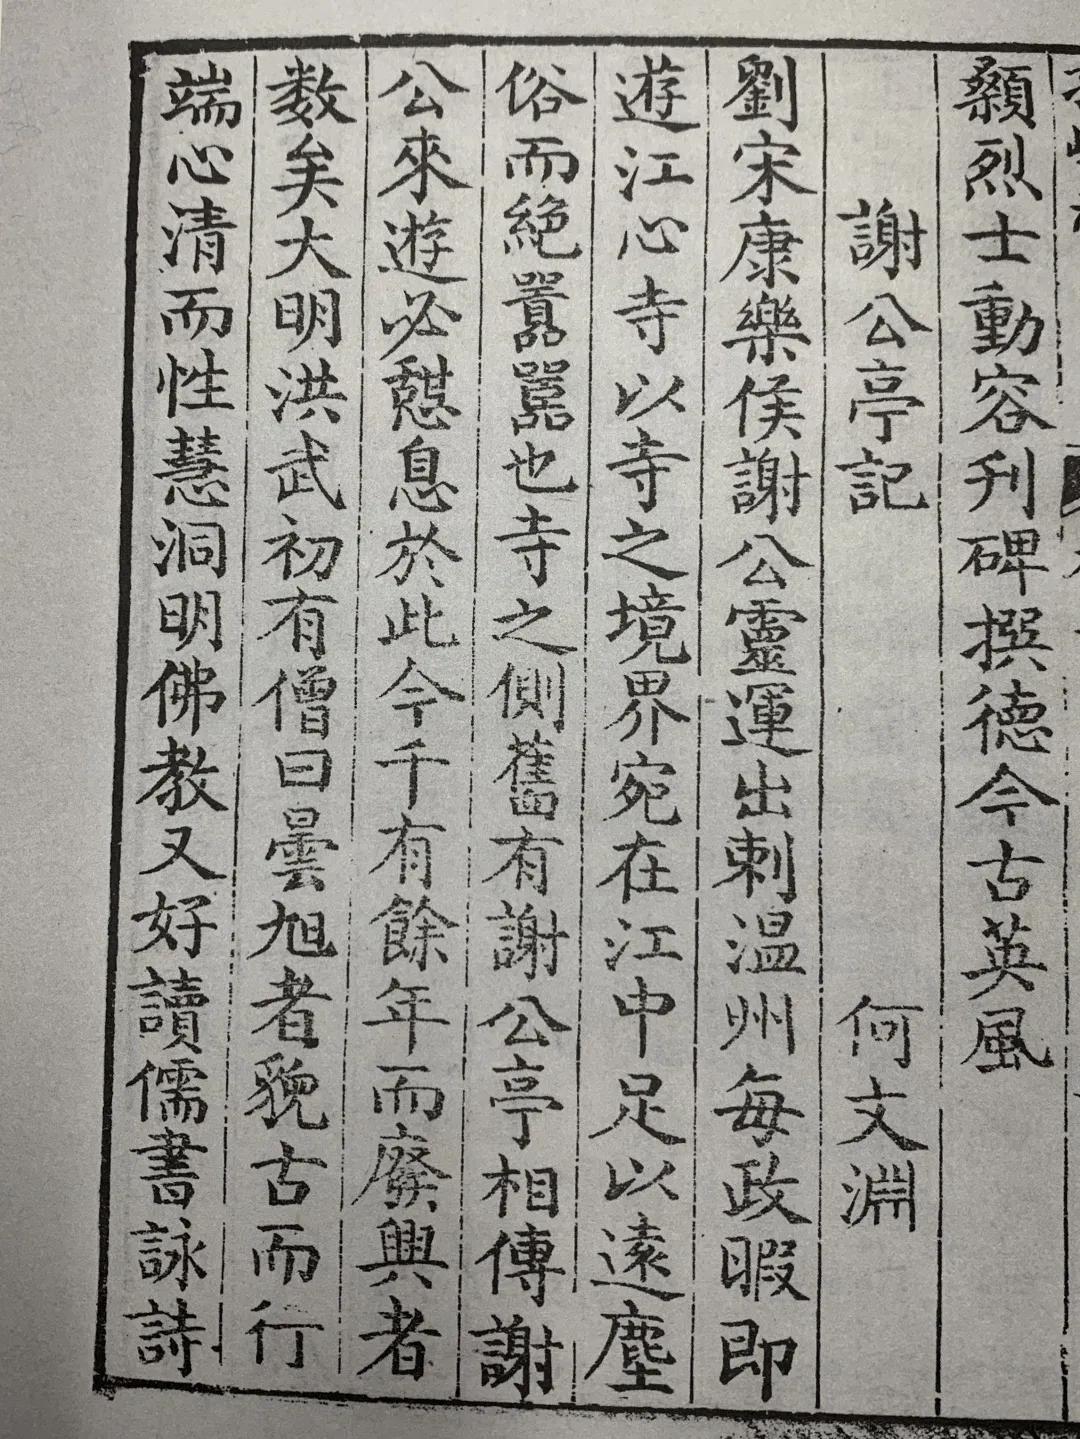 顙烈士動容刋碑撰德今古英風
謝公亭記 何文淵
劉宋康樂侯謝公靈運出刺温州每政暇即
遊江心寺以寺之境界宛在江中足以遠塵
俗而絶囂囂也寺之側舊有謝公亭相傳謝
公來遊必憇息於此今千有餘年而廢興者
数矣大明洪武初有僧曰曇旭者貌古而行
端心清而性慧洞明佛教又好讀儒書詠詩